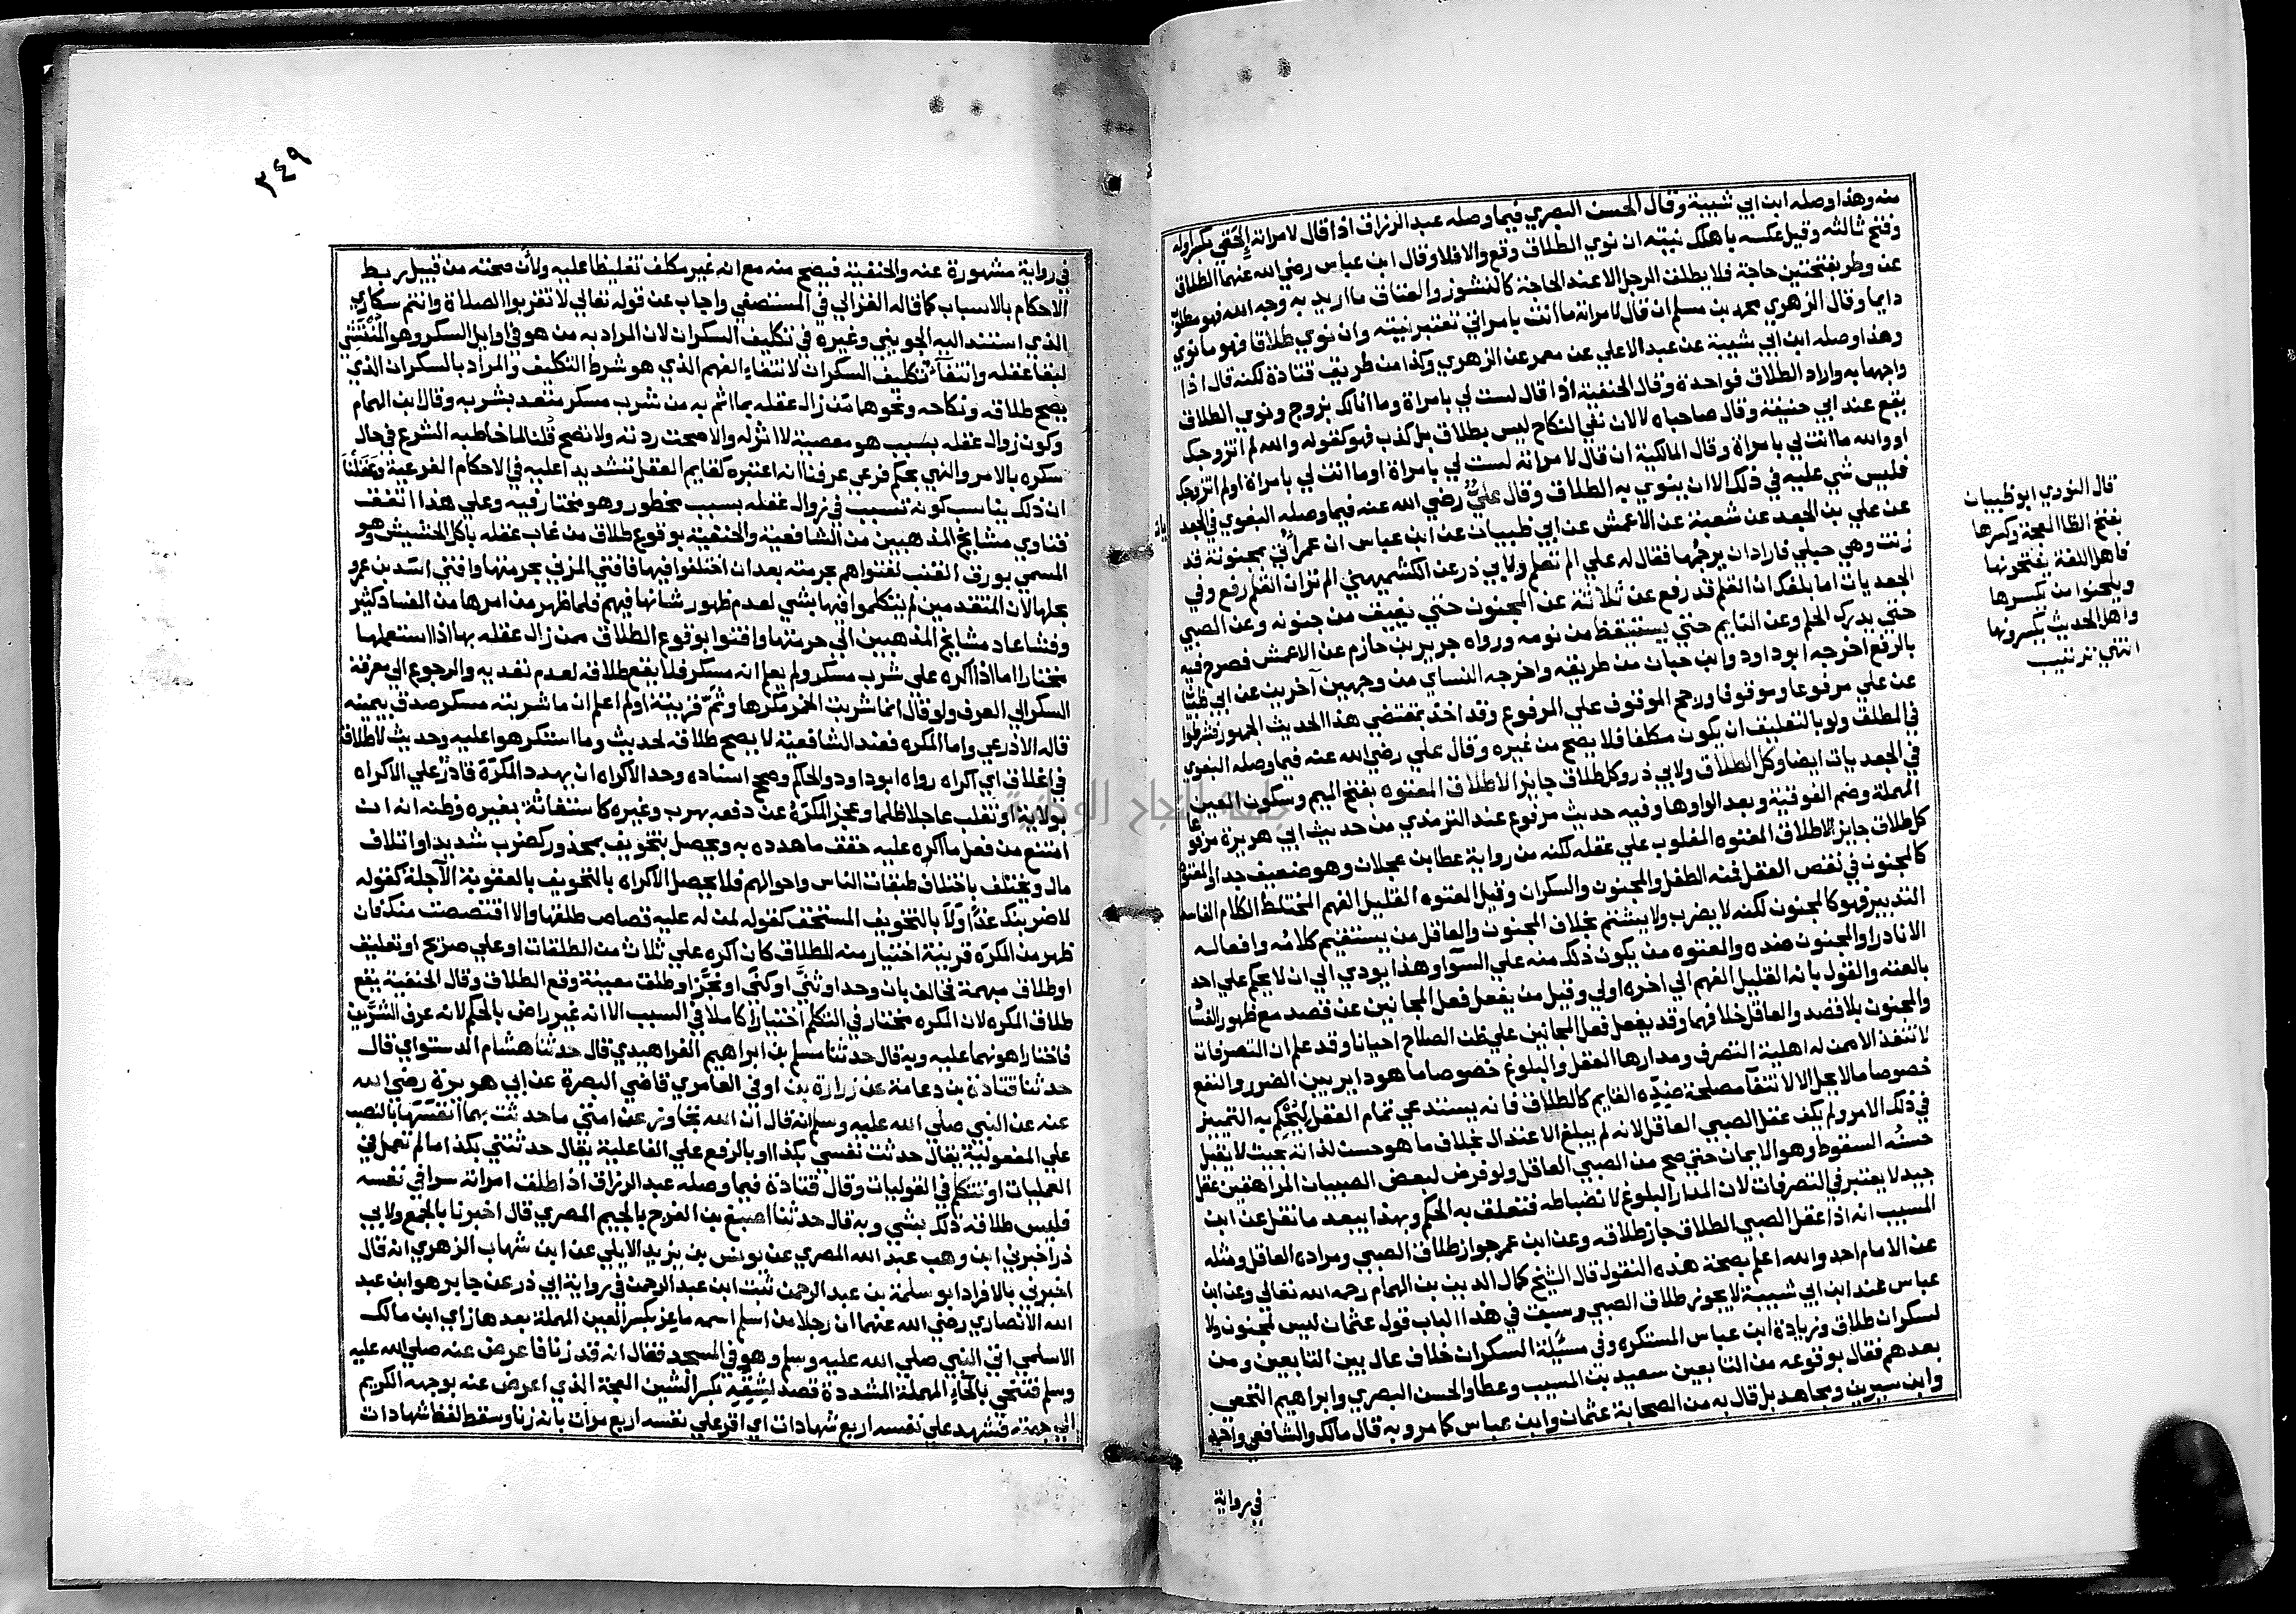 منه وهذا وصله ابن ابي شيبة وقال الحسن البصري فيما وصله عبد الرزاق اذا قال لامراته إلحقي بكسر اوله
وفتح ثالثه وقيل عكسه باهلك نيته ان نوي الطلاق وقع والا فلا وقال ابن عباس رضي الله عنهما الطلاق
عن وطر بفتحتين حاجة فلا يطلق الرجل الا عند الحاجة كالنشوز والعتاق ما اريد به وجه الله فهو مطلوب
دايما وقال الزهري محمد بن مسلم ان قال لامراته ما انت بامراتي تعتبر نيته وان نوي طلاقا فهو ما نوي
وهذا وصله ابن ابي شيبة عن عبد الاعلي عن معمر عن الزهري وكذا من طريق قتادة لكنه قال اذا
واجهها به واراد الطلاق فواحدة وقال الحنفية اذا قال لست لي بامراة وما انا لك بزوج ونوي الطلاق
يقع عند ابي حنيفة وقال صاحباه لا لان نفي النكاح ليس بطلاق بل كذب فهو كقوله والله لم اتزوجك
او والله ما انت لي بامراة وقال المالكية ان قال لامراته لست لي بامراة او ما انت لي بامراة او لم اتزوجك
فليس شي عليه في ذلك الا ان ينوي به الطلاق وقال علي رضي الله عنه فيما وصله البغوي في الجعد
يات
عن علي بن الجعد عن شعبة عن الاعمش عن ابي ظبيان عن ابن عباس ان عمر أُتي بمجنونة قد
زنت وهي حبلي فاراد ان يرجمها فقال له علي الم تعلم ولابي ذر عن الكشميهني الم تر ان القلم رفع وفي
الجعديات اما بلغك ان القلم قد رفع عن ثلاثة عن المجنون حتي يفيق من جنونه وعن الصبي
حتي يدرك الحلم وعن النايم حتي يستيقظ من نومه ورواه جرير بن حازم عن الاعمش فصرح فيه
بالرفع اخرجه ابو داود وابن حبان من طريقه واخرجه النساي من وجهين آخرين عن ابي ظبيان
عن علي مرفوعا وموقوفا ورجح الموقوف علي المرفوع وقد اخذ بمقتضي هذا الحديث الجمهور فشرطوا
في المطلق ولو بالتعليق ان يكون مكلفا فلا يصح من غيره وقال علي رضي الله عنه فيما وصله البغوي
في الجعديات ايضا وكل الطلاق ولابي ذر وكل طلاق جايز الا طلاق المعتوه بفتح الميم وسكون العين
المهملة وضم الفوقية وبعد الواو ها وفيه حديث مرفوع عند الترمذي من حديث ابي هريرة مرفوعا
كل طلاق جايز الا طلاق المعتوه المغلوب علي عقله لكنه من رواية عطا بن عجلان وهو ضعيف جدا والمعتوه
كالمجنون في نقص العقل فمنه الطفل والمجنون والسكران وقيل المعتوه القليل الفهم المختلط الكلام الفاسد
التدبير فهو كالمجنون لكنه لا يضرب ولا يشتم بخلاف المجنون والعاقل من يستقيم كلامه وافعاله
الا نادرا والمجنون ضده والمعتوه من يكون ذلك منه علي السوآ وهذا يودي الي ان لا يحكم علي احد
بالعته والقول بانه القليل الفهم الي اخره اولي وقيل من يفعل فعل المجانين عن قصد مع ظهور الفساد
والمجنون بلا قصد والعاقل خلافهما وقد يفعل فعل المجانين علي ظن الصلاح احيانا وقد علم ان التصرفات
لا تنفذ الا ممن له اهلية التصرف ومدارها العقل والبلوغ خصوصا ما هو داير بين الضرر والنفع
خصوصا ما لا يحل الا لانتفآ مصلحة ضده القايم كالطلاق فانه يستدعي تمام العقل ليُحكِم به التمييز
في ذلك الامر ولم يكف عقل الصبي العاقل لانه لم يبلغ الاعتدال بخلاف ما هو حسن لذاته بحيث لا يقبل
حسنُه السقوط وهو الايمان حتي صح من الصبي العاقل ولو فرض لبعض الصبيان المراهقين عقل
جيد لا يعتبر في التصرفات لان المدار البلوغ لانضباطه فتعلق به الحكم وبهذا يبعد ما نقل عن ابن
المسيب انه اذا عقل الصبي الطلاق جاز طلاقه وعن ابن عمر جواز طلاق الصبي ومراده العاقل ومثله
عن الامام احمد والله اعلم بصحة هذه النقول قال الشيخ كمال الدين بن الهمام رحمه الله تعالي وعن ابن
عباس عند ابن ابي شيبة لا يجوز طلاق الصبي وسبق في هذا الباب قول عثمان ليس لمجنون ولا
لسكران طلاق وزيادة ابن عباس المستكره وفي مسئلة السكران خلاف عال بين التابعين ومن
بعدهم فقال بوقوعه من التابعين سعيد بن المسيب وعطا والحسن البصري وابراهيم النخعي
وابن سيرين ومجاهد بل قال به من الصحابة عثمان وابن عباس كما مر وبه قال مالك والشافعي واحمد
في رواية
قال النووي ابو ظبيان
بفتح الظا المعجمة وكسرها
فاهل اللغة يفتحونها
ويلحنون من يكسرها
واهل الحديث يكسرونها
انتهي ترتيب
٣٤٩
في رواية مشهورة عنه والحنفية فيصح منه مع انه غير مكلف تغليظا عليه ولأن صحته من قبيل ربط
الاحكام بالاسباب كما قاله الغزالي في المستصفي واجاب عن قوله تعالي لا تقربوا الصلاة وانتم سكاري
الذي استند اليه الجويني وغيره في تكليف السكران لان المراد به من هو في اوايل السكر وهو المُنْتَشِي
لبقا عقله وانتفآء تكليف السكران لانتفاء الفهم الذي هو شرط التكليف والمراد بالسكران الذي
يصح طلاقه ونكاحه ونحوهما من زال عقله بما اثم به من شرب مسكر متعد بشربه وقال ابن الهمام
وكون زوال عقله بسبب هو معصية لا اثر له والا صحت ردته ولا تصح قُلنا لما خاطبه الشرع في حال
سكره بالامر والنهي بحكم فرعي عرفنا انه اعتبره كقايم العقل تشديدا عليه في الاحكام الفرعية وعَقَلْنا
ان ذلك يناسب كونه تسبب في زوال عقله بسبب محظور وهو مختار فيه وعلي هذا اتفق
فتاوي مشايخ المذهبين من الشافعية والحنفية بوقوع طلاق من غاب عقله باكل الحشيش وهو
المسمي بورق القنب لفتواهم بحرمته بعد ان اختلفوا فيها فافتي المزني بحرمتها وافتي اسد بن عمرو
بحلها لان المتقدمين لم يتكلموا فيها بشي لعدم ظهور شانها فيهم فلما ظهر من امرها من الفساد كثير
وفشا عاد مشايخ المذهبين الي حرمتها وافتوا بوقوع الطلاق ممن زال عقله بها اذا استعملها
مختارا اما اذا اكره علي شرب مسكر ولم يعلم انه مسكر فلا يقع طلاقه لعدم تعديه والرجوع الي معرفة
السكر الي العرف ولو قال انما شربت الخمر مكرها وثَمَّ قرينة او لم اعلم ان ما شربته مسكر صدق بيمينه
قاله الاذرعي واما المكره فعند الشافعية لا يصح طلاقه لحديث وما استكرهوا عليه وحديث لا طلاق
في اغلاق اي اكراه رواه ابو داود والحاكم وصحح اسناده وحد الاكراه ان يهدد المكرَهَ قادر علي الاكراه
بولاية او تغلب عاجلا ظلما وعجز المكرَهُ عن دفعه بهرب وغيره كاستغاثة بغيره وظنه انه ان
امتنع من فعل ما اكره عليه حقق ما هدده به ويحصل بتخويف بمحذور كضرب شديد او اتلاف
مال ويختلف باختلاف طبقات الناس واحوالهم فلا يحصل الاكراه بالتخويف بالعقوبة الآجلة كقوله
لاضربنك غدًا ولا بالتخويف المستحق كقوله لمن له عليه قصاص طلقها والا اقتصصت منك فان
ظهر من المكرَه قرينة اختيار منه للطلاق كان اكره علي ثلاث من الطلقات او علي صريح او تعليق
او طلاق مبهمة فخالف بان وحد او ثنَّي او كنَّي او نجَّز او طلق معينة وقع الطلاق وقال الحنفية يقع
طلاق المكره لان المكره مختار في التكلم اختيارا كاملا في السبب الا انه غير راض بالحكم لانه عرف الشرَّين
فاختار اهونهما عليه وبه قال حدثنا مسلم بن ابراهيم الفراهيدي قال حدثنا هشام الدستواي قال
حدثنا قتادة بن دعامة عن زرارة بن اوفي العامري قاضي البصرة عن ابي هريرة رضي الله
عنه عن النبي صلي الله عليه وسلم انه قال ان الله تجاوز عن امتي ما حدثت بهما انفسَها بالنصب
علي المفعولية يقال حدثت نفسي بكذا او بالرفع علي الفاعلية يقال حدثتني بكذا ما لم تعمل في
العمليات او تتكلم في القوليات وقال قتادة فيما وصله عبد الرزاق اذا طلق امراته سرا في نفسه
فليس طلاقه ذلك بشي وبه قال حدثنا اصبغ بن الفرج بالجيم المصري قال اخبرنا بالجمع ولابي
ذر اخبرني ابن وهب عبد الله المصري عن يونس بن يزيد الايلي عن ابن شهاب الزهري انه قال
اخبرني بالافراد ابو سلمة بن عبد الرحمن ثبت ابن عبد الرحمن في رواية ابي ذر عن جابر هو ابن عبد
الله الانصاري رضي الله عنهما ان رجلا من اسلم اسمه ماعز بكسر العين المهملة بعدها زاي ابن مالك
الاسلمي اتي النبي صلي الله عليه وسلم وهو في المسجد فقال انه قد زنا فاعرض عنه صلي الله عليه
وسلم فتنحي بالحاء المهملة المشددة قصد لشِقِّهِ بكسر الشين المعجمة الذي اعرض عنه بوجهه الكريم
الي جهته فشهد علي نفسه اربع شهادات اي اقر علي نفسه اربع مرات بانه زنا وسقط لفظ شهادات
جامعة النجاح الوطنية